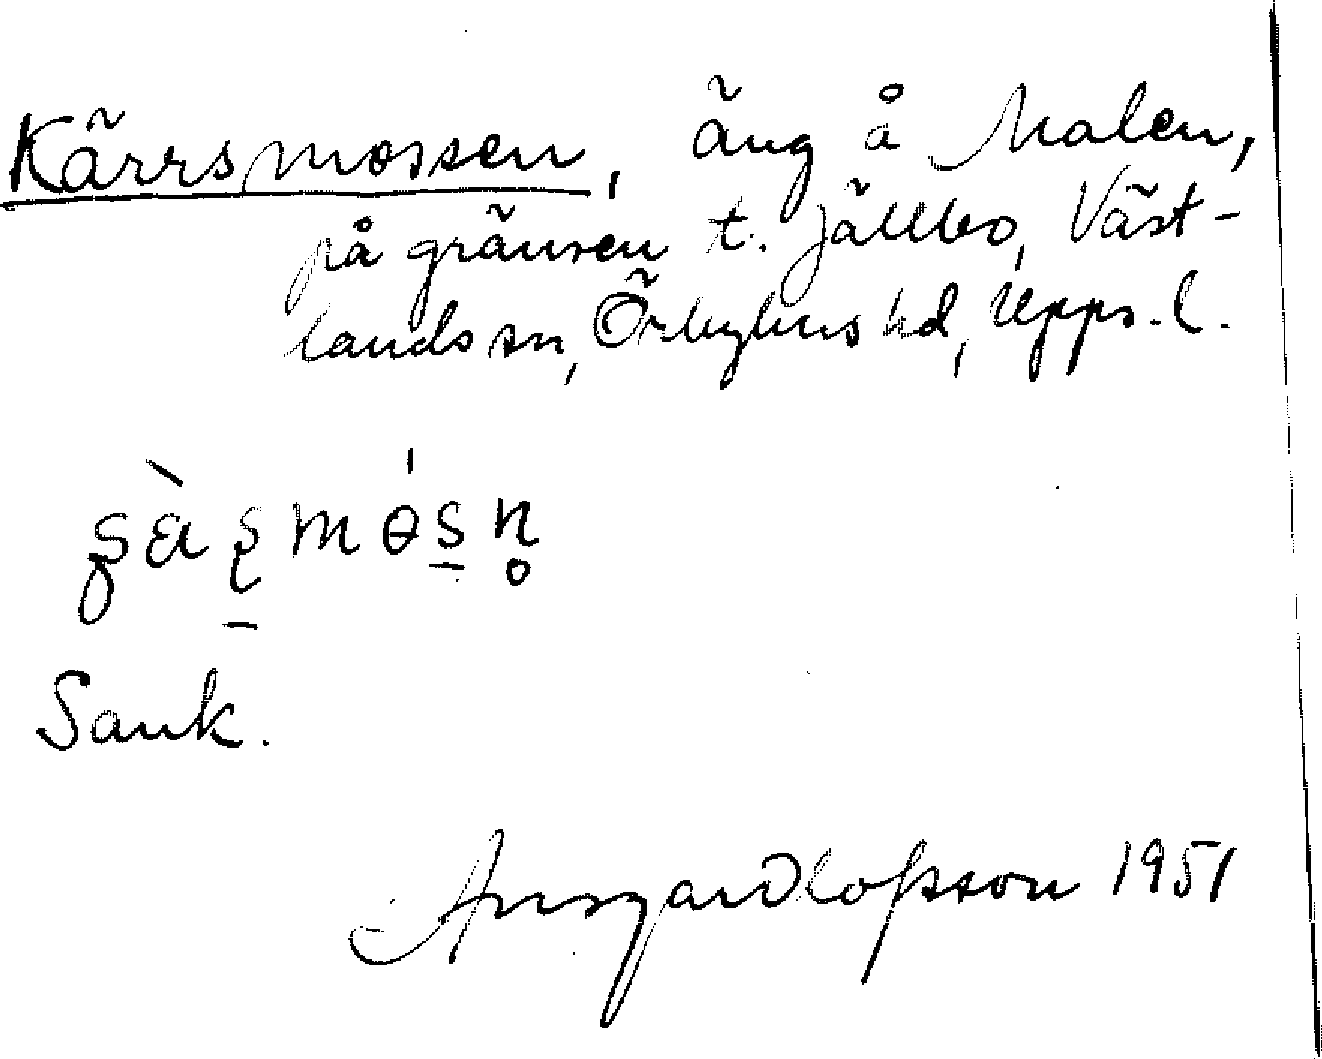 Kärrsmossen, äng å Malen,
på gränsen t. Jällbo, Väst-
lands sn, Örbyhus hd, Upps. l.
Sank.
Ansgar Olofsson 1951